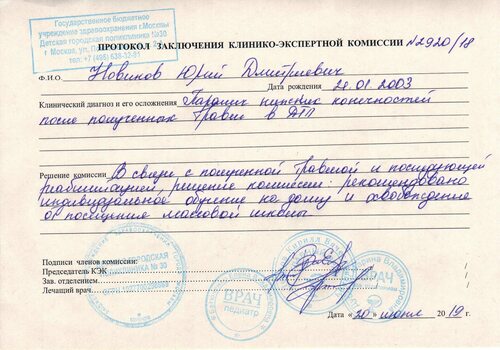 Государственное бюджетное
учреждение здравоохранения г.Москвы
Детская городская поликлиника №30
г Москва, ул.
тел: +7(495) 638-32-91
ПРОТОКОЛ ЗАКЛЮЧЕНИЯ КЛИНИКО-ЭКСПЕРТНОЙ КОМИССИИ №2920/18
Ф.И.О. Новиков Юрий Дмитриевич
Дата рождения 21.01.2003
Клинический диагноз и его осложнения Паралич нижних конечностей
после полученных травм в ДТП
Решение комиссии В связи с полученной травмой и последующей
реабилитацией, решение комиссии: рекомендовано
индивидуальное обучение на дому и освобождение
от посещения массовой школы
Подписи членов комиссии:
Председатель КЭК
Зав. отделением
Лечащий врач
ВРАЧ
педиатр
Кирилл
ВРАЧ
Владимировна
Дата «20» июля 2019 г.